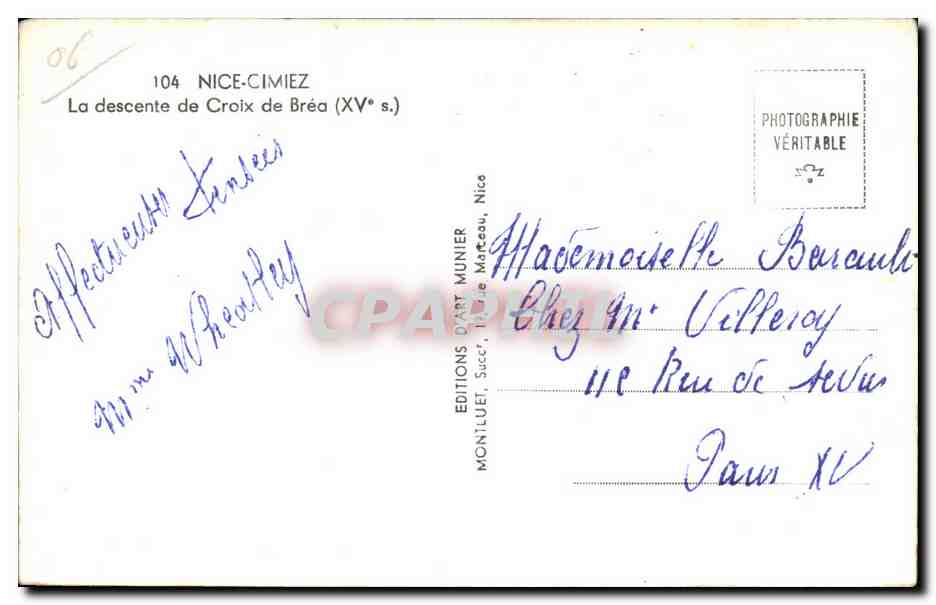 06
104 NICE-CIMIEZ
La descente de Croix de Bréa (XVe s.)
Affectueuses Pensées
Mme Wheatley
EDITIONS D'ART MUNIER
MONTLUET, Succr, rue Marceau, Nice
PHOTOGRAPHIE
VÉRITABLE
Mademoiselle Barault
Chez Mr Villeroy
Rue de
Paris XV
CPARAMA